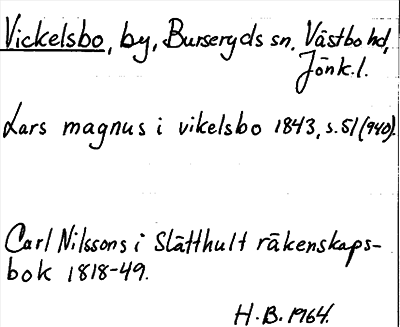 Vickelsbo, by, Burseryds sn, Västbo hd,
Jönk.l.
Lars magnus i vikelsbo 1843, s. 51 (940).
Carl Nilssons i Slätthult räkenskaps-
bok 1818-49.
H.B. 1964.